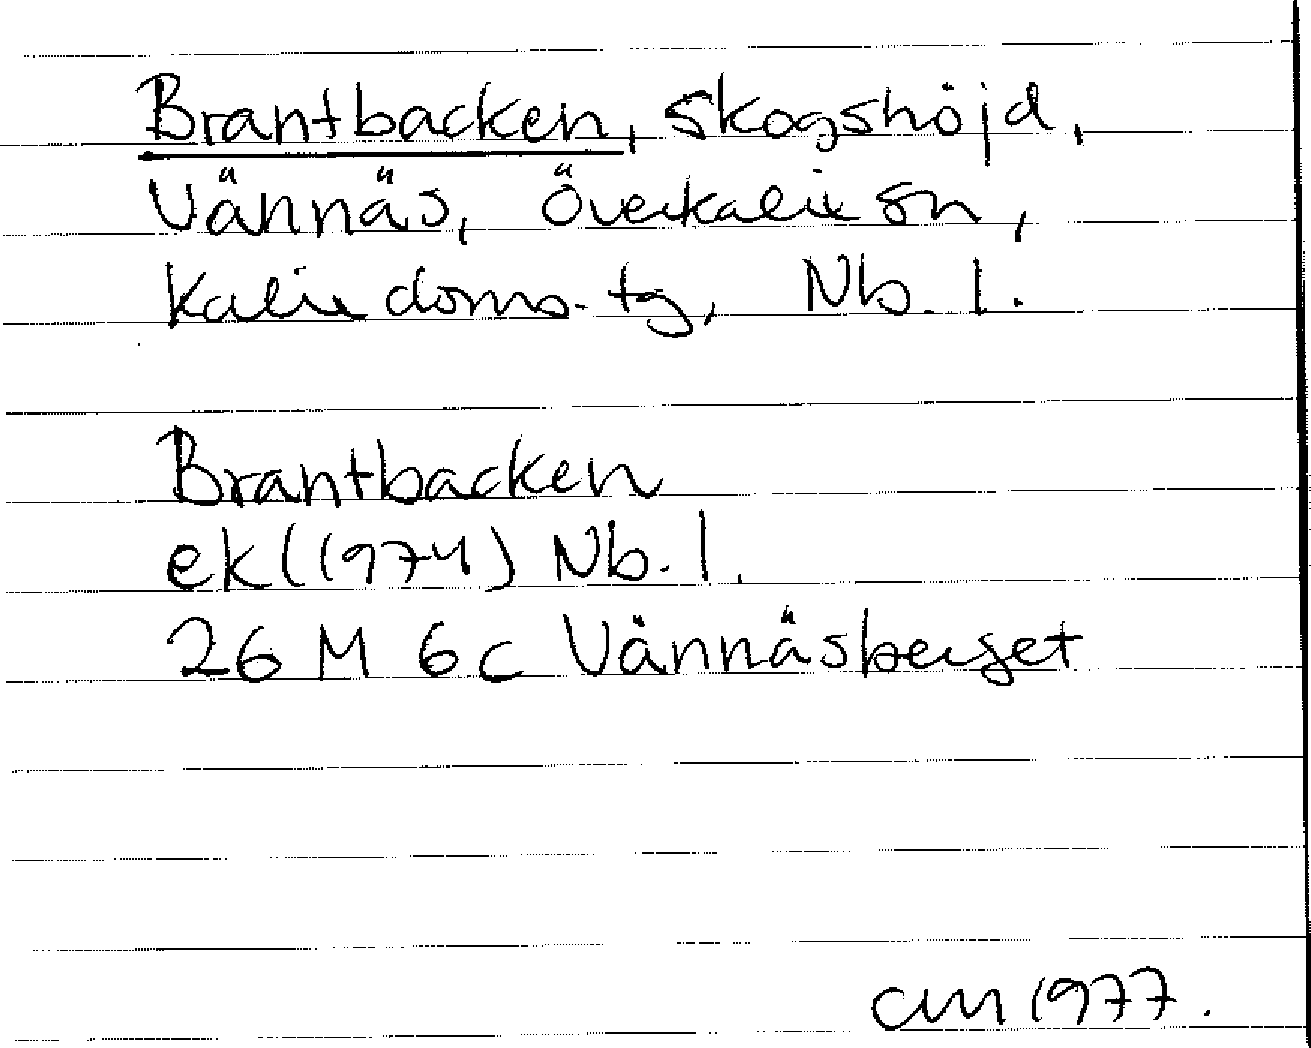 Brantbacken, skogshöjd,
Vännäs, Överkalix sn,
Kalix doms. tg, Nb. l.
Brantbacken
ek (1974) Nb. l.
26 M 6c Vännäsberget
cm 1977.